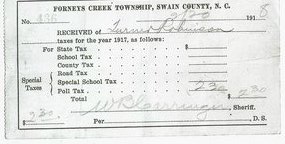 FORNEYS CREEK TOWNSHIP, SWAIN COUNTY, N. C.
No. 436 2/20 1918
RECEIVED OF Turner Robinson
taxes for the year 1917, as follows:
For State Tax $
School Tax
County Tax
Road Tax
Special Taxes { Special School Tax
Poll Tax 2 30
Total $ 2 30
Sheriff.
$ 2 30 Per D. S.